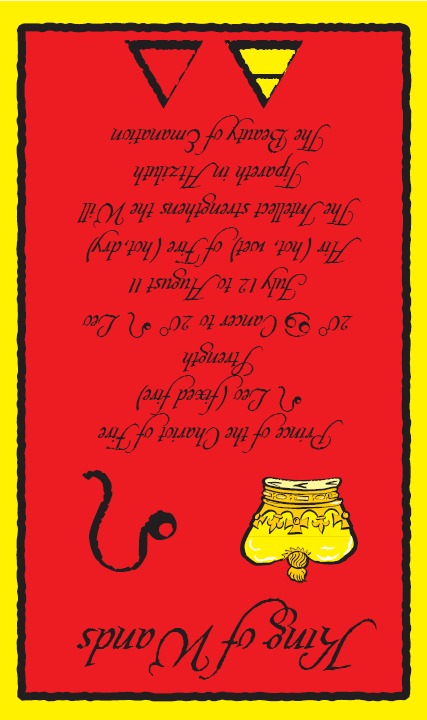 King of Wands
Prince of the Chariot of Fire
♌ Leo (fixed fire)
Strength
20° Cancer ♋ to 20° ♌ Leo
July 12 to August 11
Air (hot, wet) of Fire (hot,dry)
The Intellect strengthens the Will
Tipareth in Atziluth
The Beauty of Emanation